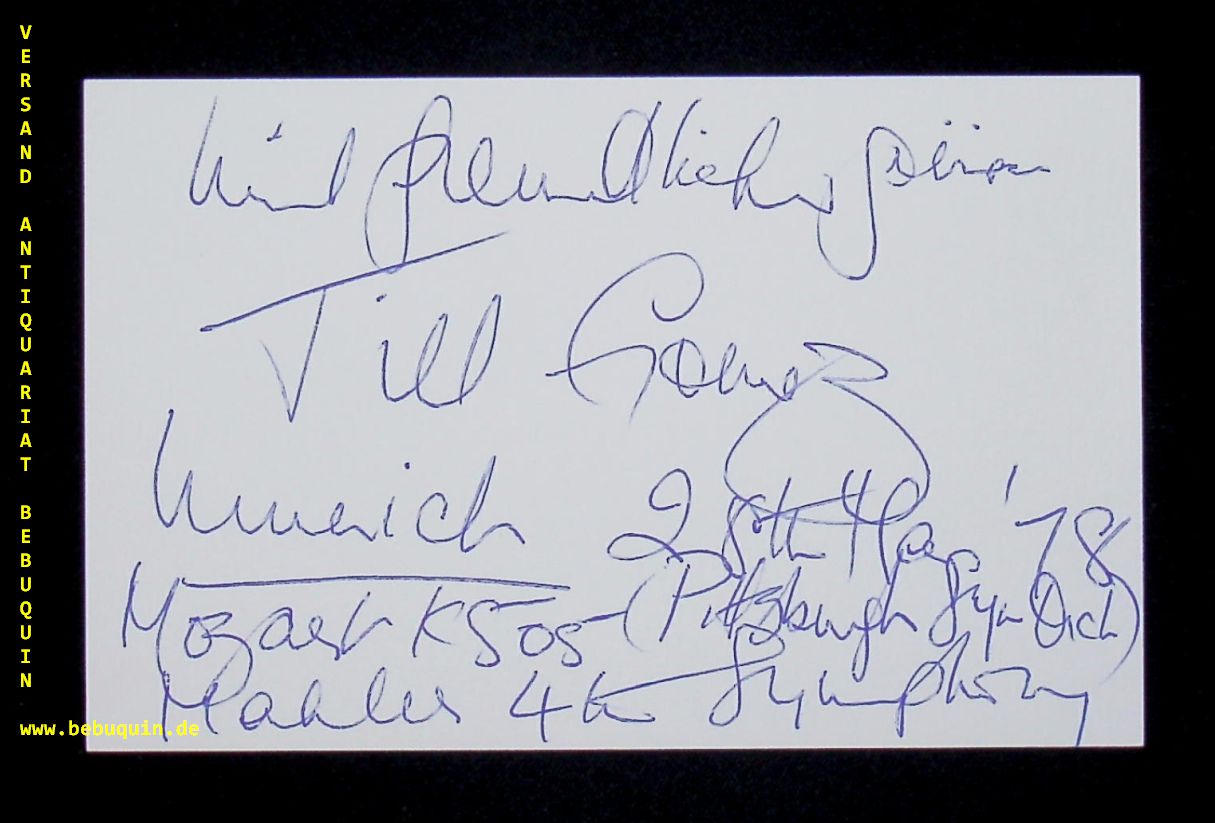 VERSAND ANTIQUARIAT BEBUQUIN
www.bebuquin.de
Mit freundlichen Grüßen
Till Gomez
Munich 28th May '78
Mozart K505 (Pittsburgh Sym Orch)
Mahler 4th Symphony